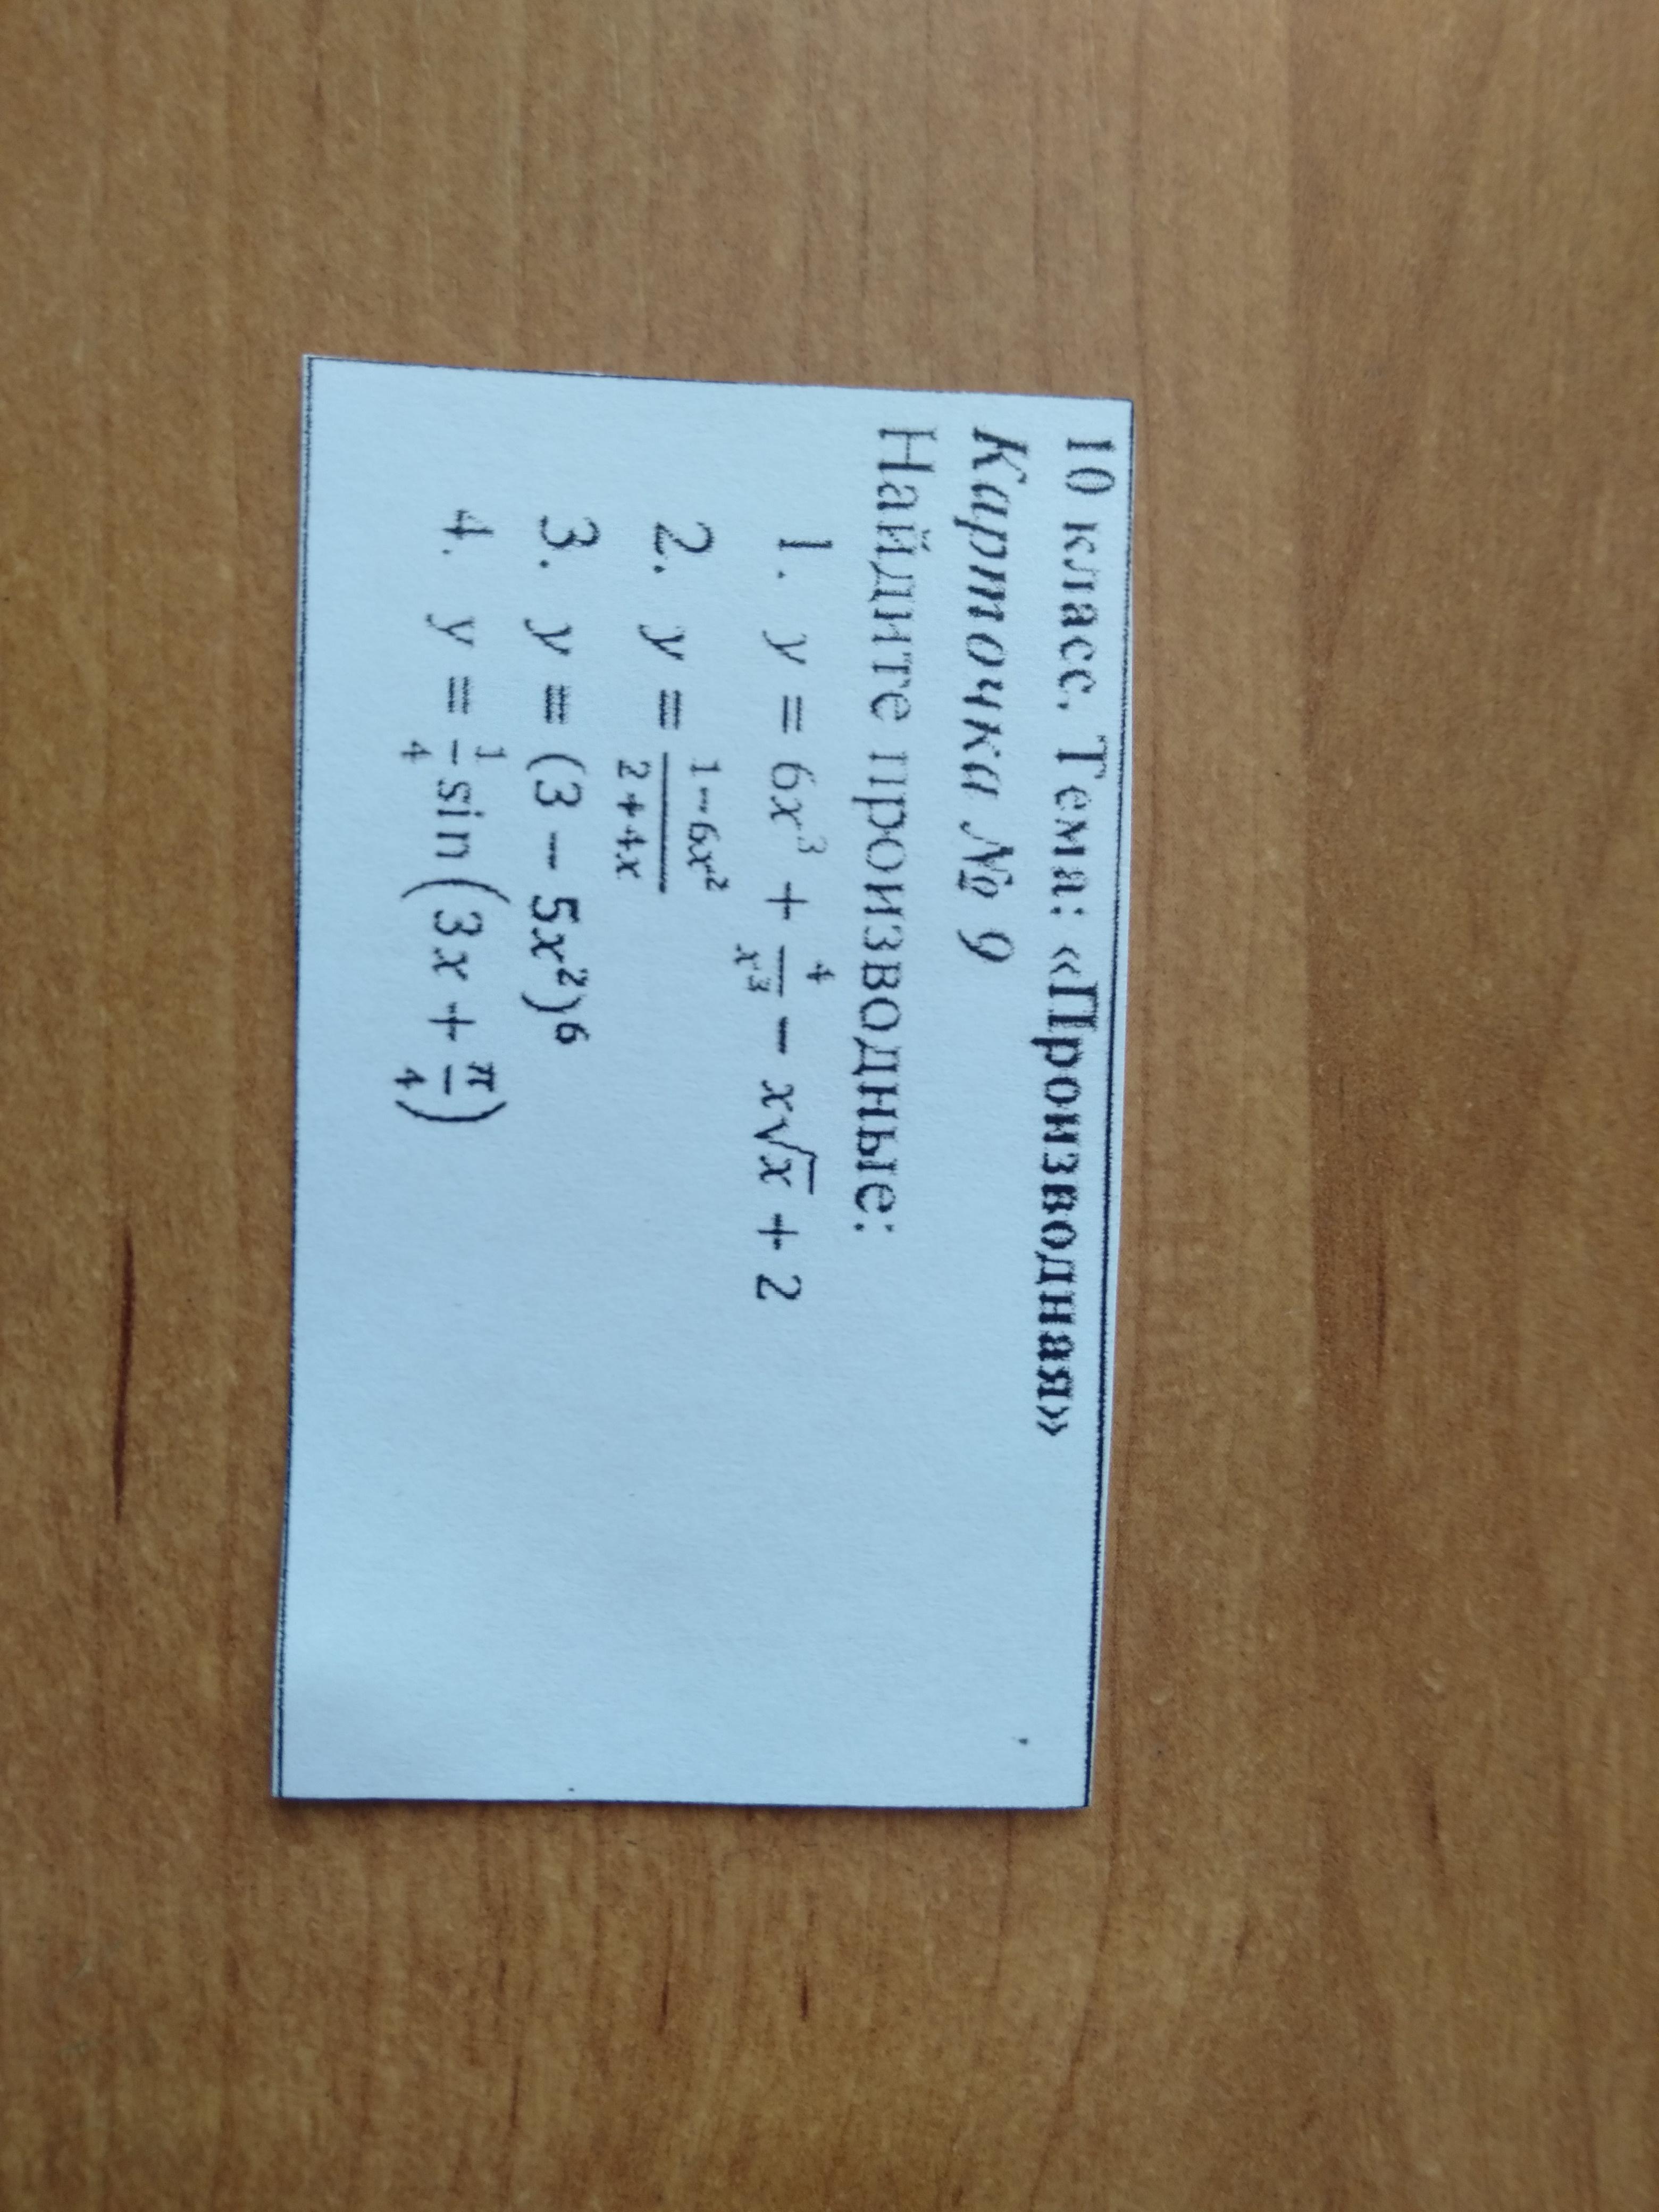 10 класс. Тема: «Производная»
Карточка № 9
Найдите производные:
1. y = 6x³ + 4/x³ − x√x + 2
2. y = (1−6x²)/(2+4x)
3. y = (3 − 5x²)⁶
4. y = 1/4 sin(3x + π/4)